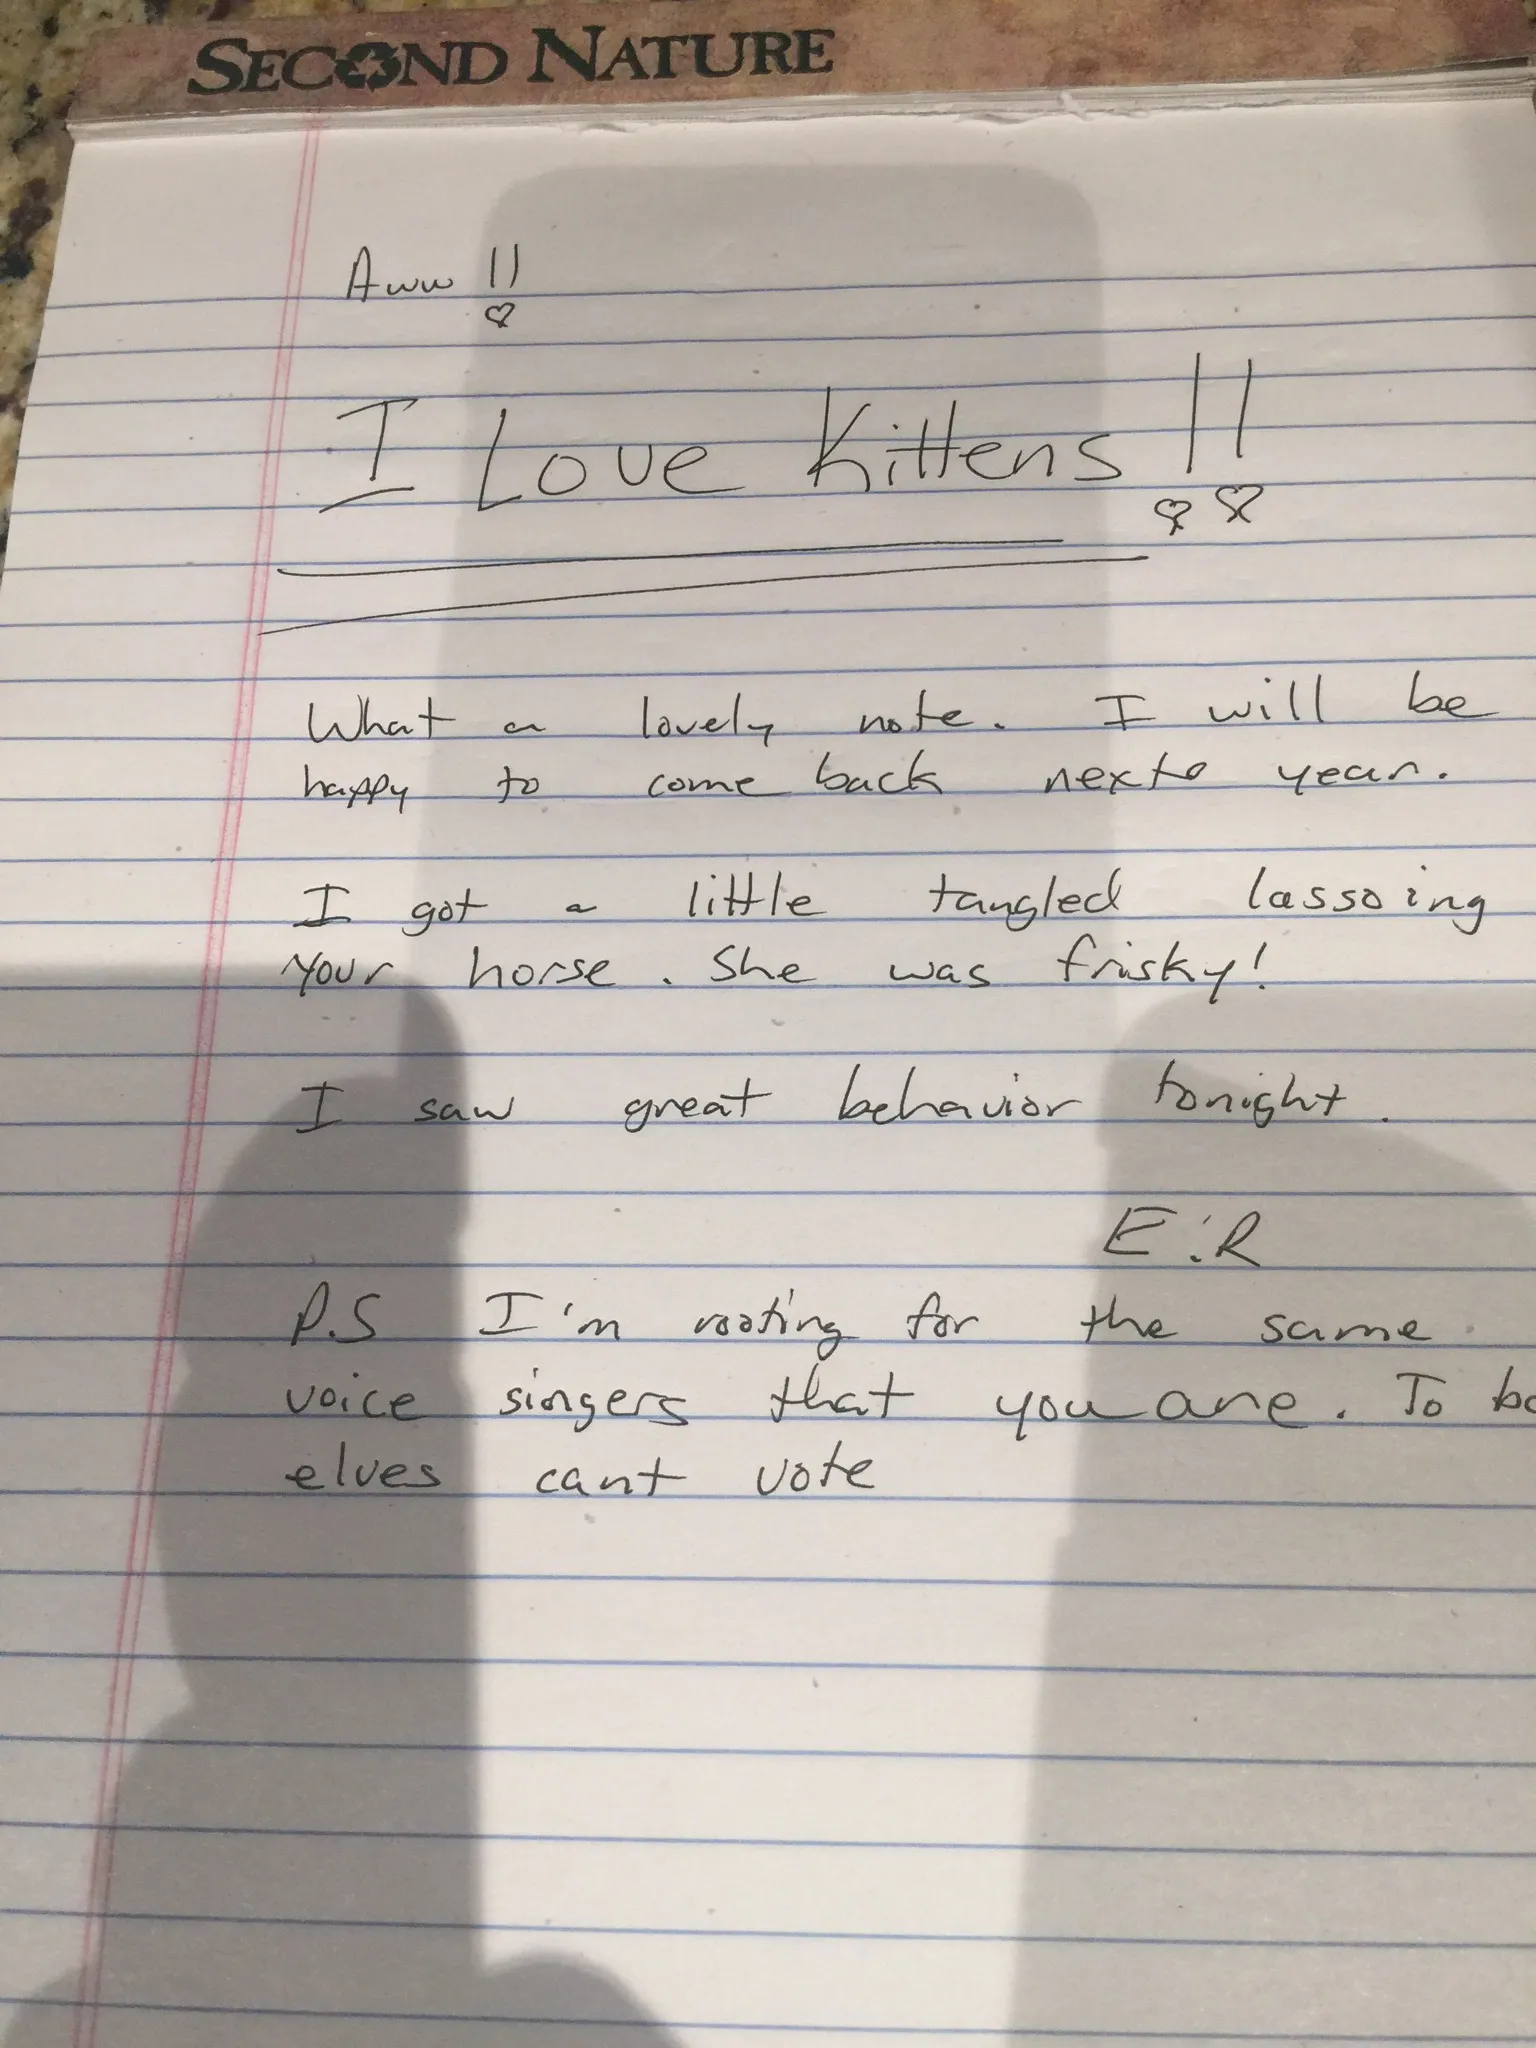 SECOND NATURE
Aww !!
I Love Kittens !!
What a lovely note. I will be
happy to come back nexto year.
I got a little tangled lassoing
your horse. She was frisky!
I saw great behavior tonight.
E:R
P.S I'm rooting for the same
voice singers that you are. To
elves cant vote